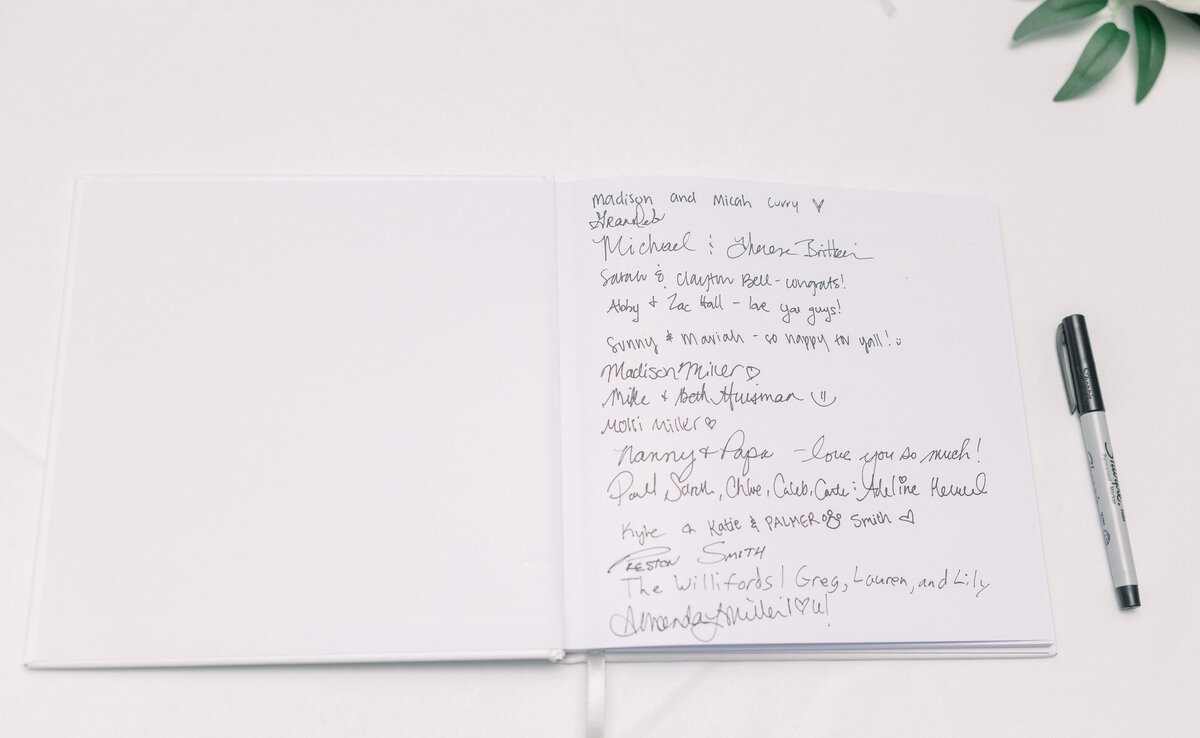 Madison and Micah Curry ♡
Michael & Therese Brittain
Sarah & Clayton Bell - congrats!
Abby + Zac Hall - love you guys!
Sunny & Mariah - so happy for yall! :)
Madison Miller ♡
Mike + Beth Huisman :)
Molli Miller ♡
Nanny + Papa - love you so much!
Paul, Sarah, Chloe, Caleb, Carter & Adeline
Kylie Katie & PALMER Smith ♡
PRESTON SMITH
The Willifords! Greg, Lauren, and Lily
Amanda Miller I ♡ U!
Sharpie